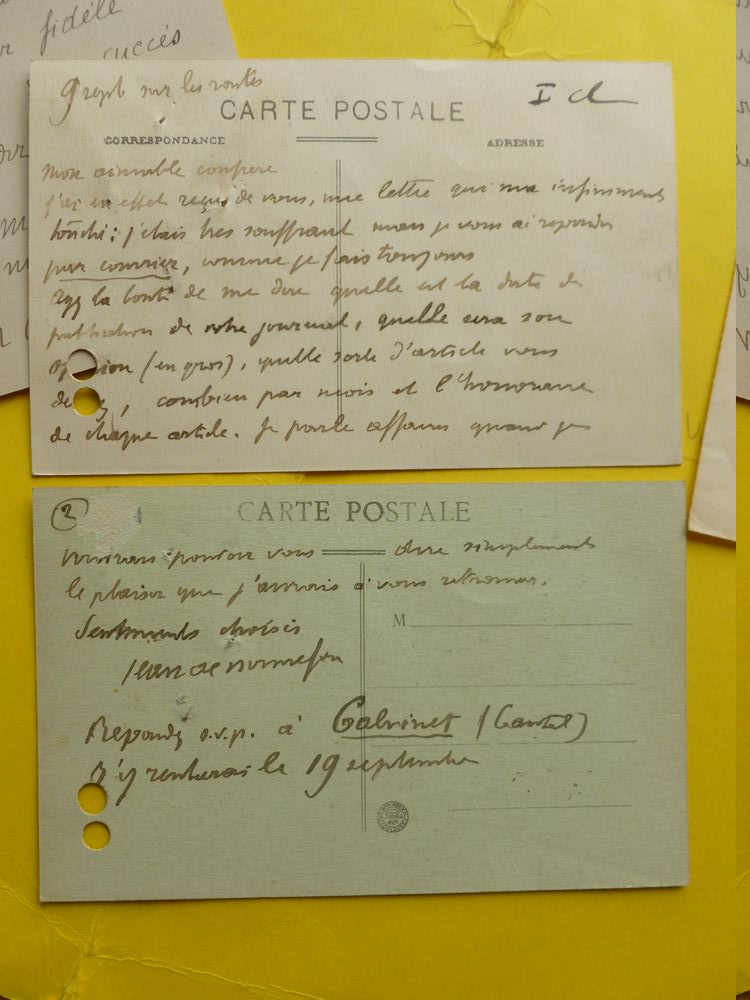 fidèle
succès
sur les routes
CARTE POSTALE
CORRESPONDANCE
ADRESSE
Mon aimable confrere
j'ai en effet reçu de vous, une lettre qui m'a infiniment
touché ; j'étais tres souffrant mais je vous ai repondu
par courrier, comme je fais toujours
ayez la bonté de me dire quelle est la date de
publication de votre journal, quelle sera son
opinion (en gros), quelle sorte d'article vous
combien par mois et l'honoraire
de chaque article. Je parle affaires quand je
2
CARTE POSTALE
pouvoir vous dire simplement
le plaisir que j'aurais à vous retrouver.
Sentiments choisis
Jean de
M
Repondez s.v.p. à Calvinet (Cantal)
J'y rentrerai le 19 septembre